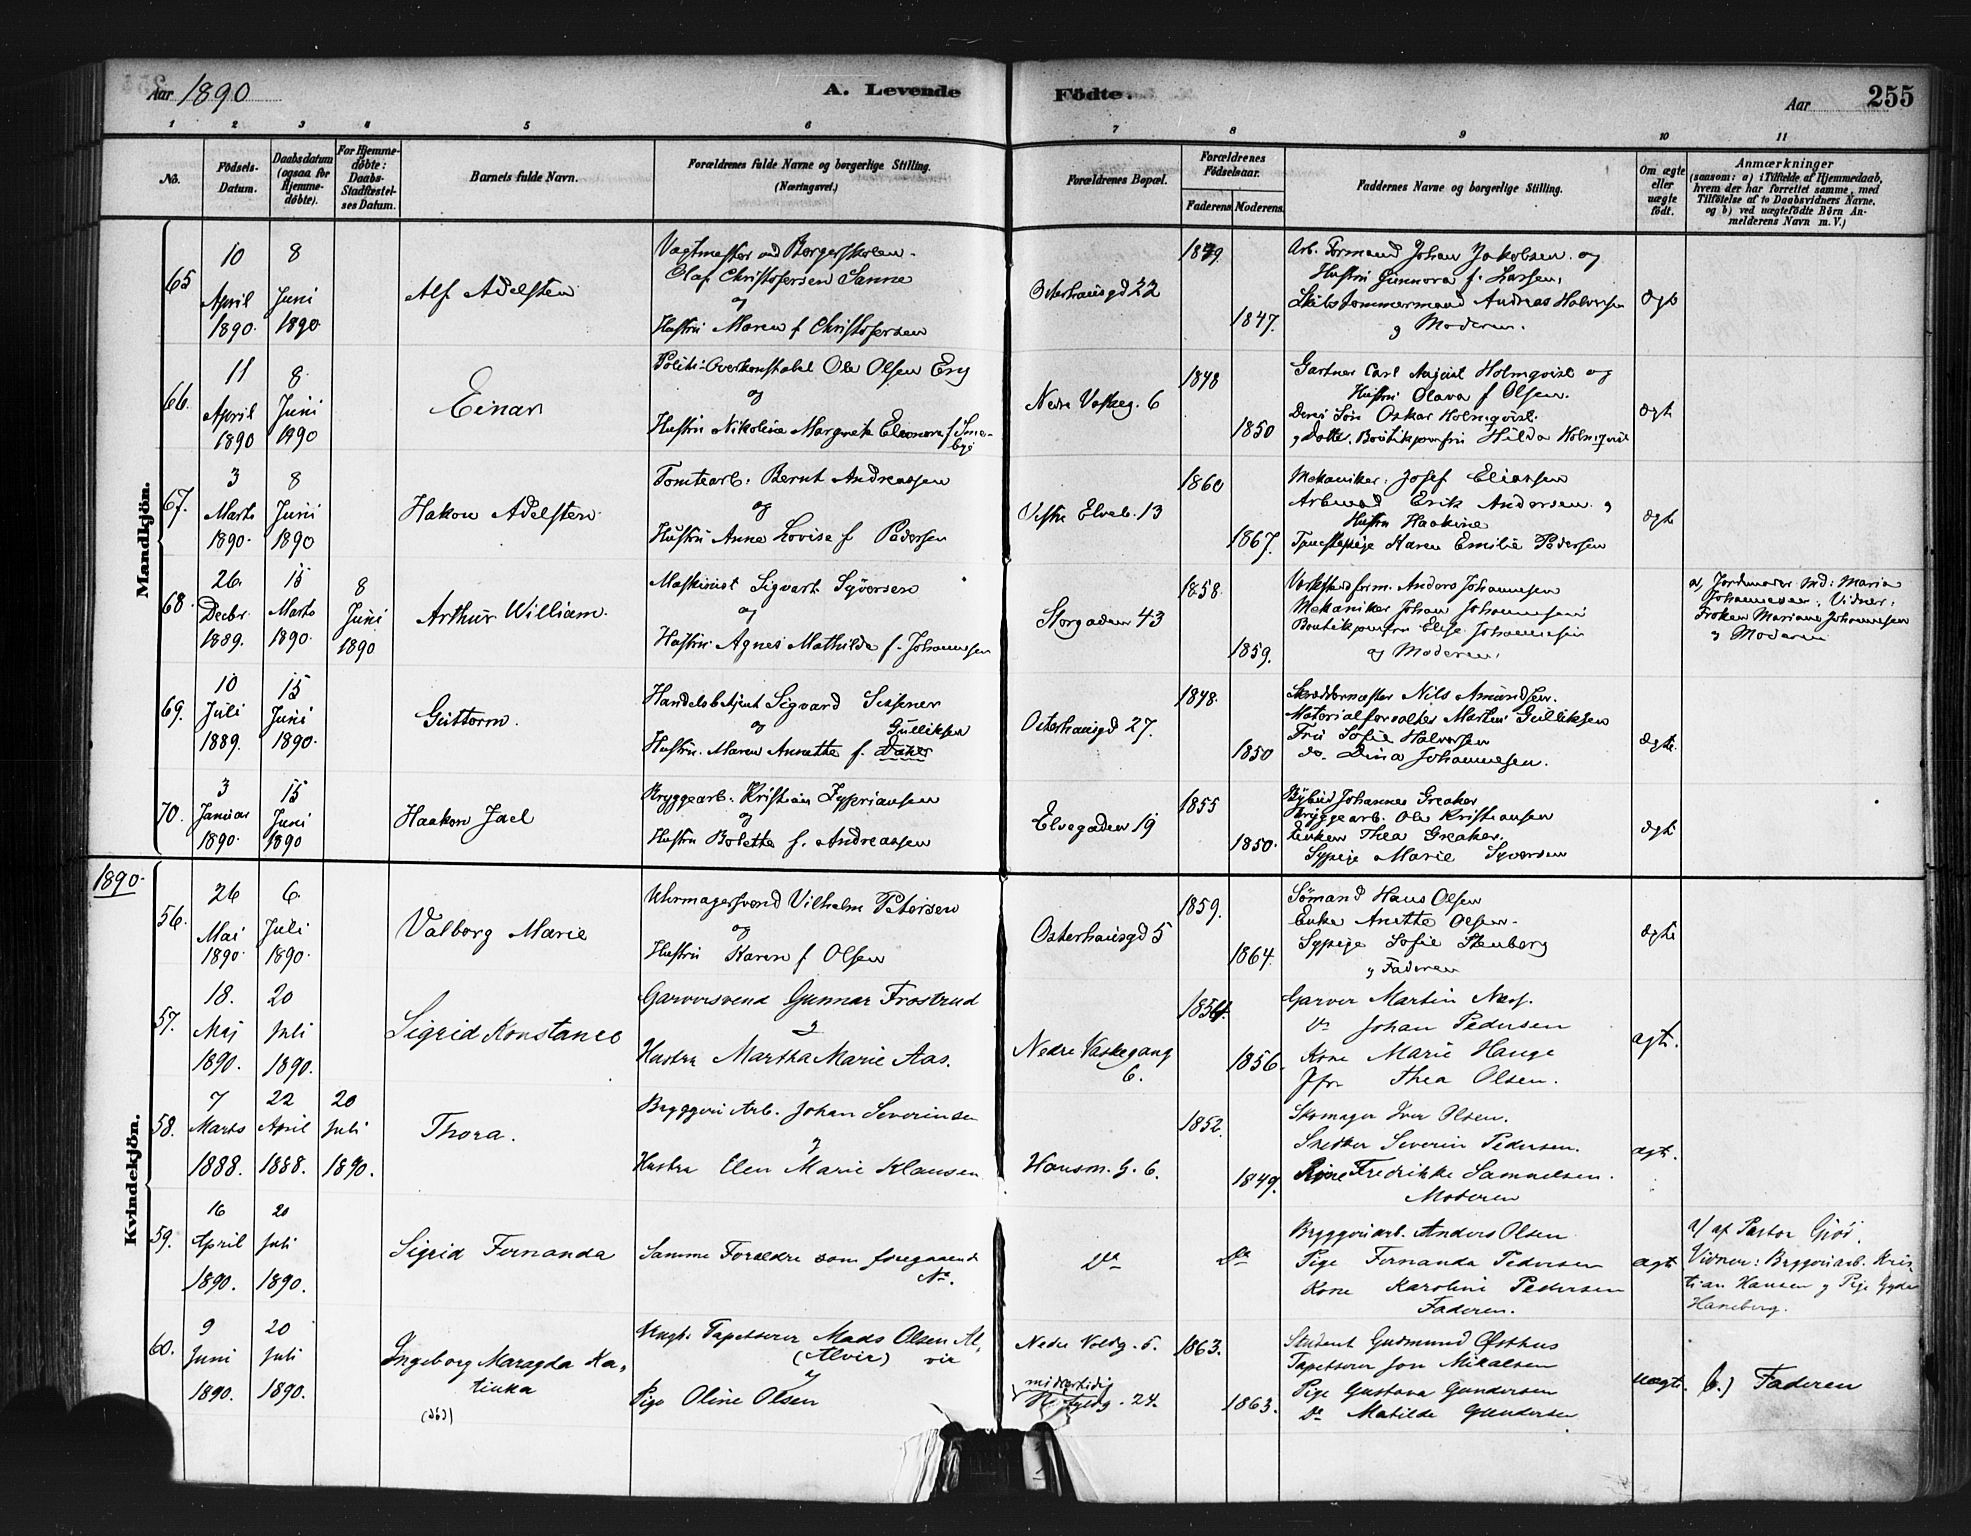 Aar 1890
A. Levende
Födte.
Aar
255
1 2 3 4 5 6 7 8 9 10 11
No.
Födsels-Datum.
Daabsdatum (ogsaa for Hjemmedöbte).
For Hjemmedöbte: Daabs-Stadfæstelses Datum.
Barnets fulde Navn.
Forældrenes fulde Navne og borgerlige Stilling.
(Næringsvei.)
Forældrenes Bopæl.
Forældrenes Födselsaar.
Faderens. Moderens.
Faddernes Navne og borgerlige Stilling.
Om ægte eller uægte födt.
Anmærkninger
(saasom: a) i Tilfælde af Hjemmedaab, hvem der har forrettet samme, med Tilföielse af to Daabsvidners Navne, og b) ved uægtefödte Börn Anmelderens Navn m. V.)
Mandkjön.
65
10 April 1890.
8 Juni 1890.
Alf Adelsten
Vagtmester ved Borgerskolen.
Olaf Christofersen Sanne
og
Hustru Maren f Christofersen
Osterhausgd 22
1849.
1847.
Arb. Formand Johan Jakobsen og
Hustru Gunnora f. Larsen,
Skibstømmermand Andreas Halvorsen
og Moderen.
ægte
66.
11 April 1890
8. Juni 1890
Einar
Politi-Overkonstabel Ole Olsen Eng
og
Hustru Nikoline Margrete Eleonora f Smebye
Nedre Voskeg. 6
1848
1850
Gartner Carl August Holmqvist og
Hustru Olava f Olsen.
Deres Søn Oskar Holmqvist.
og Datter, Boutikjomfru Hilda Holmqvist
ægte
67.
3 Marts 1890.
8 Juni 1890
Hakon Adelsten
Tomtearb. Bernt Andreassen
og
Hustru Anne Lovise f Pedersen
Vestre Elveb. 13
1860
1867.
Mekaniker Josef Eliassen
Arbmd Erik Andersen og
Hustru Haakine
Tjenestepige Karen Emilie Pedersen
ægte
68.
26. Decbr 1889.
15 Marts 1890.
8 Juni 1890
Arthur William.
Maskinist Sigvart Syversen
og
Hustru Agnes Mathilde f. Johannesen
Storgaden 43
1858.
1859.
Værkstedform. Anders Johannesen
Mekaniker Johan Johannesen
Boutikjomfru Elise Johannesen
og Moderen.
a, Jordmoder Md: Maria
Johannesen. Vidner:
Frøken Mariane Johannesen
og Moderen
69.
10 Juli 1889.
15 Juni 1890.
Guttorm.
Handelsbetjent Sigvard Sissener
og
Gulliksen
Hustru Maren Annette f.
Osterhausgd 27.
1848.
1850
Skræddermester Nils Amundsen.
Materialforvalter Martin Gulliksen
Fru Sofie Halvorsen
do. Dina Johannesen.
ægte.
70.
3 Januar 1890.
15 Juni 1890
Haakon Jael
Bryggearb. Kristian Zypriansen
og
Hustru Bolette f. Andreassen
Elvegaden 19
1855
1850.
Bybud Johannes Greaker
Bryggearb. Ole Kristiansen
Enken Thea Greaker.
Sypige Marie Syversen
ægte
1890.
Kvindekjön.
56.
26 Mai 1890.
6. Juli 1890.
Valborg Marie
Uhrmagersvend Vilhelm Petersen
og
Hustru Karen f Olsen
Osterhausgd 5
1859.
1864.
Sømand Hans Olsen
Enke Anette Olsen.
Sypige Sofie Stenberg
og Faderen
ægte
57.
18. Maj 1890.
20 Juli 1890.
Sigrid Konstance
Garversvend Gunnar Frostrud
og
Hustru Martha Marie Aas.
Nedre Vaskegang 6.
1854.
1856.
Garver Martin Næs.
do Johan Pedersen
Kone Marie Hauge
Jfr. Thea Olsen.
ægte.
58.
7 Marts 1888.
22 April 1888.
20 Juli 1890.
Thora.
Bryggeri Arb. Johan Severinsen
og
Hustru Elen Marie Klausen
Hausm. G. 6.
1852.
1849.
Skomager Iver Olsen.
Snekker Severin Pedersen.
Kone Fredrikke Samuelsen.
Moderen
ægte.
59.
16 April 1890.
20 Juli 1890.
Sigrid Fernanda
Samme Forældre som foregaaende
No.
Do
Do
Bryggeriarb. Anders Olsen
Pige Fernanda Pedersen
Kone Karoline Pedersen
Faderen.
ægte
a/ af Pastor
Vidner: Bryggeriarb. Kristian Hansen og Pige Gyda
Haneborg.
60.
9 Juni 1890.
20 Juli 1890.
Ingeborg Maragda Katinka
Ungk. Tapetserer Mads Olsen Alvir
(Alvir)
og
Pige Oline Olsen
Nedre Voldg. 5.
midlertidig
24.
1863.
1863.
Student Gudmund Østhus
Tapetserer Jon Mikalsen
Pige Gustava Gundersen
Do Matilde Gundersen.
uægte.
b.) Faderen